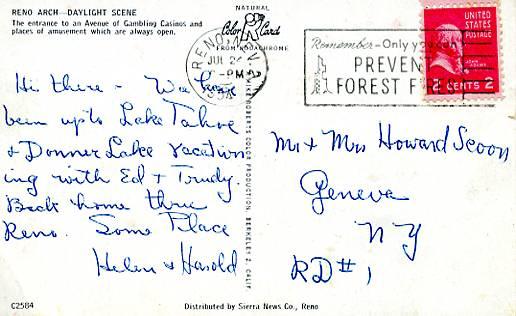 RENO ARCH—DAYLIGHT SCENE
The entrance to an Avenue of Gambling Casinos and
places of amusement which are always open.
NATURAL
Color Card
FROM KODACHROME
Hi there - We have
been up to Lake Tahoe
+ Donner Lake vacation
ing with Ed + Trudy.
Back home thru
Reno. Some Place
Helen & Harold
C2584
MIKE ROBERTS COLOR PRODUCTION, BERKELEY 2, CALIF.
Distributed by Sierra News Co., Reno
RENO, NEV.
JUL 24
-PM
1954
Remember-Only you can
PREVENT
FOREST FIRES!
UNITED
STATES
POSTAGE
JOHN ADAMS
2 CENTS 2
Mr + Mrs Howard Scoon
Geneva
NY
RD #1